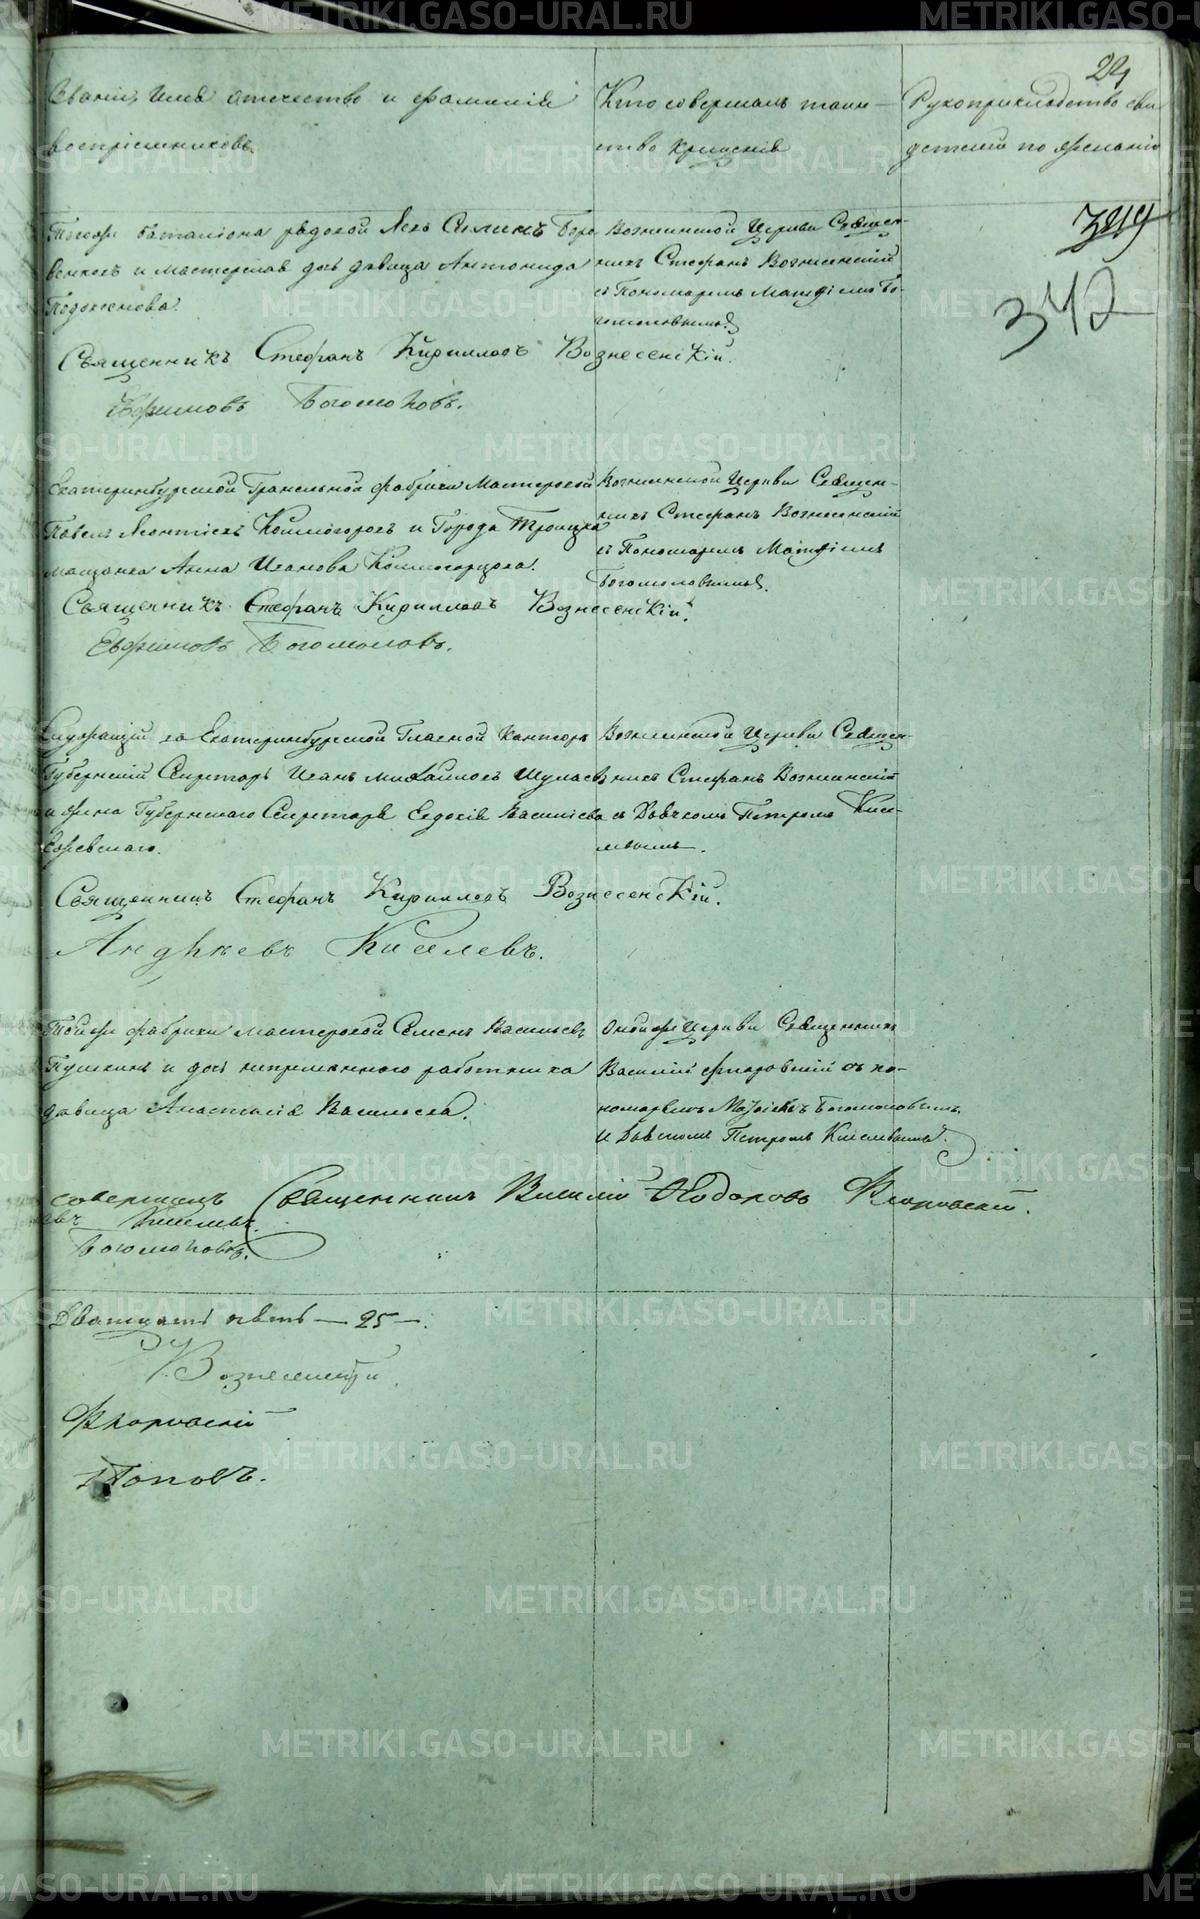 24
Званіе, Имя отечество и фамилія
воспріемниковъ.
Кто совершалъ таин-
ство крещенія
Рукоприкладство сви
детелей по желанію
349
342
Тойже баталіона рядовой Левъ Силинъ Боро
венковъ и мастерскаго дочь девица Антонида
Подоксенова.
Вознесенской Церкви Священ-
никъ Стефанъ Вознесенскій
съ Пономаремъ Матфіемъ Бо-
гомоловымъ.
Священникъ Стефанъ Кирилловъ Вознесенскій.
Ефимовъ Богомоловъ.
Екатеринбургской Гранильной фабрики Мастеровой
Павелъ Леонтіевъ Коллогоровъ и Города Троицка
мещанка Анна Иванова
Вознесенской Церкви Священ-
никъ Стефанъ Вознесенскій
съ Пономаремъ Матфіемъ
Богомоловымъ.
Священникъ Стефанъ Кирилловъ Вознесенскій.
Ефимовъ Богомоловъ.
Служащій въ Екатеринбургской Главной Канторе
Губернскій Секретарь Иванъ Михайловъ Шулаевъ
и жена Губернскаго Секретаря Евдокія Васильева
Вознесенской Церкви Священ-
никъ Стефанъ Вознесенскій
съ Дьячкомъ Петромъ Кисе-
левымъ.
Священникъ Стефанъ Кирилловъ Вознесенскій.
Андреевъ Киселевъ.
Тойже фабрики мастеровой Семенъ Васильевъ
Пушкинъ и дочь непременного работника
девица Анастасія Васильева.
Онойже Церкви Священникъ
Василій Флоровскій съ по-
номаремъ Матфіемъ Богомоловымъ
и Дьячкомъ Петромъ Киселевымъ.
совершалъ Священникъ Василій Флоровскій.
Киселевъ.
Богомоловъ.
Двадцать пять — 25 —.
Вознесенскій
Флоровскій
Поповъ.
METRIKI.GASO-URAL.RU